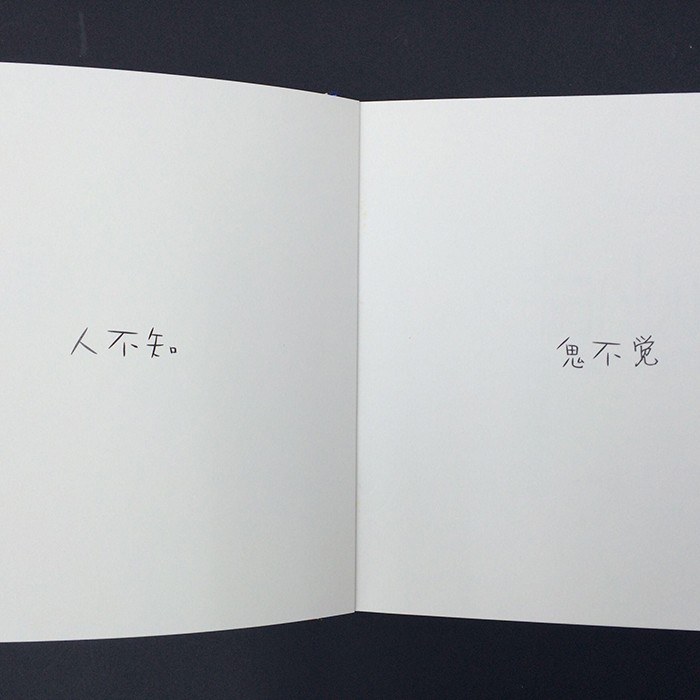 人不知
鬼不觉